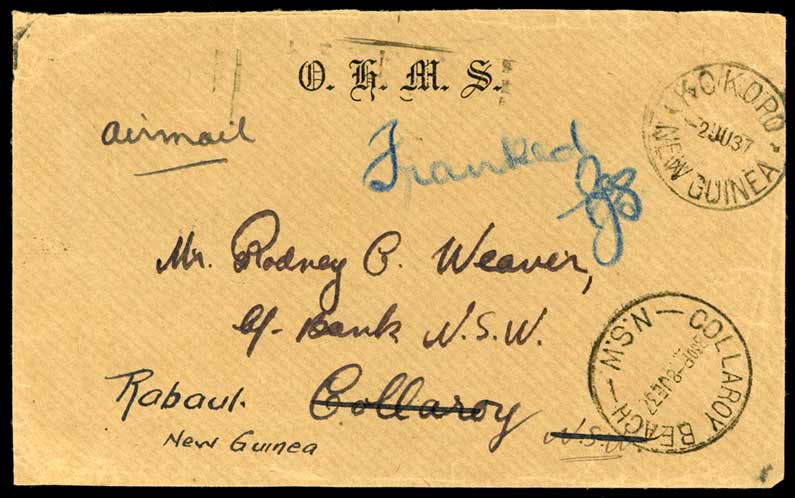 O. H. M. S.
airmail
Franked
KOKOPO
-2JU37
NEW GUINEA
Mr. Rodney C. Weaver,
C/- Bank N.S.W.
Collaroy
N.S.W.
Rabaul.
New Guinea
COLLAROY BEACH — N.S.W —
-8JE37